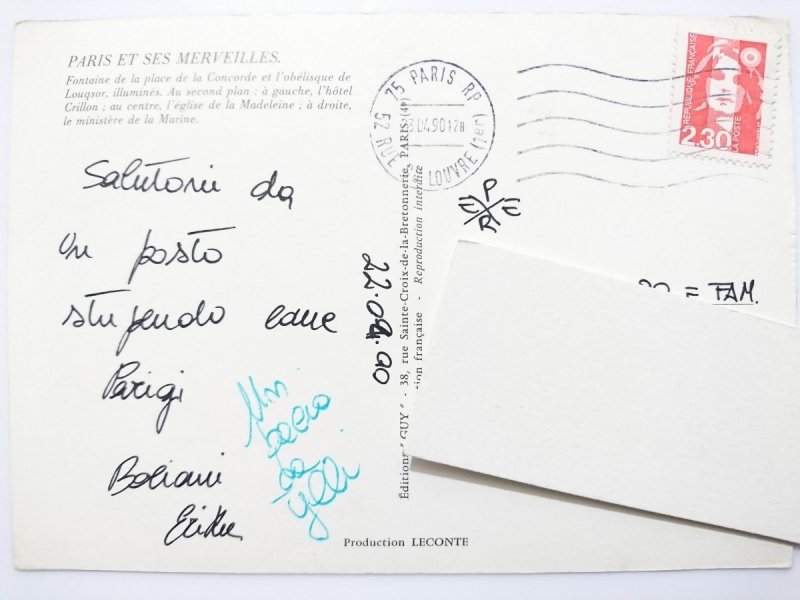 PARIS ET SES MERVEILLES.
Fontaine de la place de la Concorde et l'obélisque de
Louqsor, illuminés. Au second plan : à gauche, l'hôtel
Crillon ; au centre, l'église de la Madeleine ; à droite,
le ministère de la Marine.
Salutoni da
un posto
stupendo come
Parigi
Bacioni
Erika
Un
bacio
da
22.04.90
Production LECONTE
Editions "GUY" - 38, rue Sainte-Croix-de-la-Bretonnerie, PARIS (4e)
française - Reproduction interdite
75 PARIS RP
52 RUE LOUVRE (1er)
3.04.90 17H
RÉPUBLIQUE FRANÇAISE
2,30
LA POSTE
= FAM.